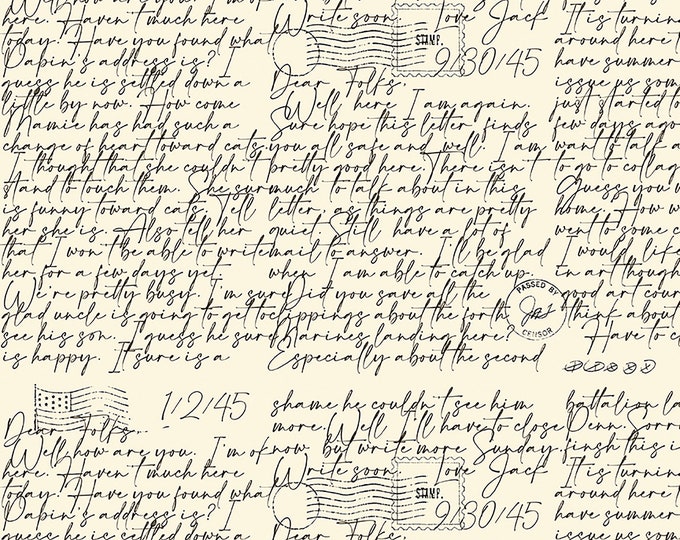 Well how are you. I'm o
here. Haven't much here
today. Have you found what
Papin's address is? I
guess he is settled down a
little by now. How come
Mamie has had such a
change of heart toward cats,
I though that she couldn't
stand to touch them. She sur
is funny toward cats. Tell
her she is. Also tell her
that I won't be able to write
her for a few days yet.
We're pretty busy. I'm sure
glad uncle is going to get to
see his son. I guess he sure
is happy. It sure is a
1/2/45
Dear Folks.
Well how are you. I'm o
here. Haven't much here
today. Have you found what
Papin's address is? I
guess he is settled down a
Write soon Love Jack
STAMP.
9/30/45
Dear Folks.
Well here I am again.
Sure hope this letter finds
you all safe and well. I am
pretty good here. There isn't
much to talk about in this
letter, as things are pretty
quiet. Still have a lot of
mail to answer. I'll be glad
when I am able to catch up.
Did you save all the
clippings about the forth
Marines landing here?
Especially about the second
PASSED BY
CENSOR
shame he couldn't see him
more. Well I'll have to close
now but write more Sunday.
Write soon Love Jack
STAMP.
9/30/45
Dear Folks.
It is turning
around here t
have summer
issue us som
just started to
few days ago
want to talk a
to go to collag
Guess you w
home. How w
went to some c
I would like
in art though
good art cour
think about
Have to c
battalion la
Penn. Sorr
finsh this i
It is turnin
around here t
have summer
issue us som